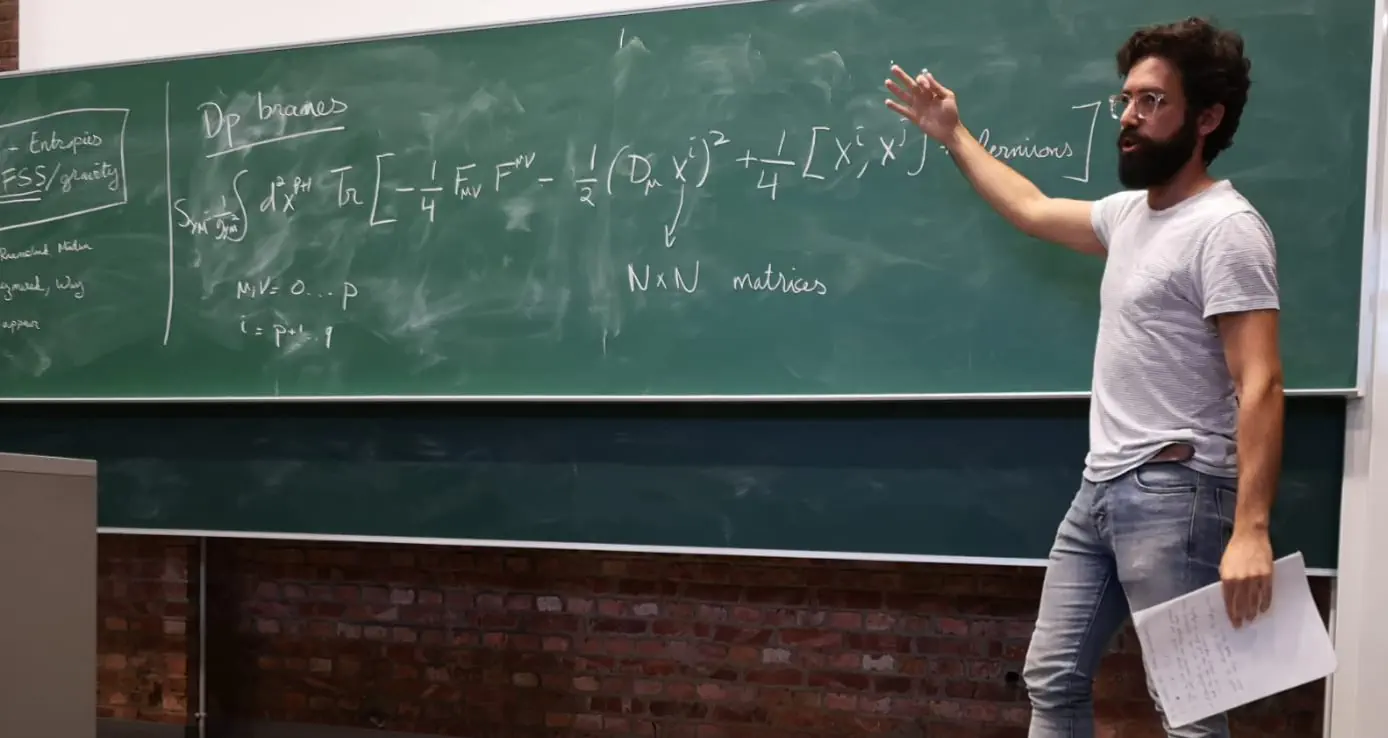 - Entropies
FSS/gravity
appear
Dp branes
S_YM = 1/g²_YM ∫ d^{p+1}x Tr [ -1/4 F_μν F^μν - 1/2 (D_μ X^i)² + 1/4 [X^i, X^j] fermions ]
N×N matrices
μ,ν = 0...p
i = p+1..9